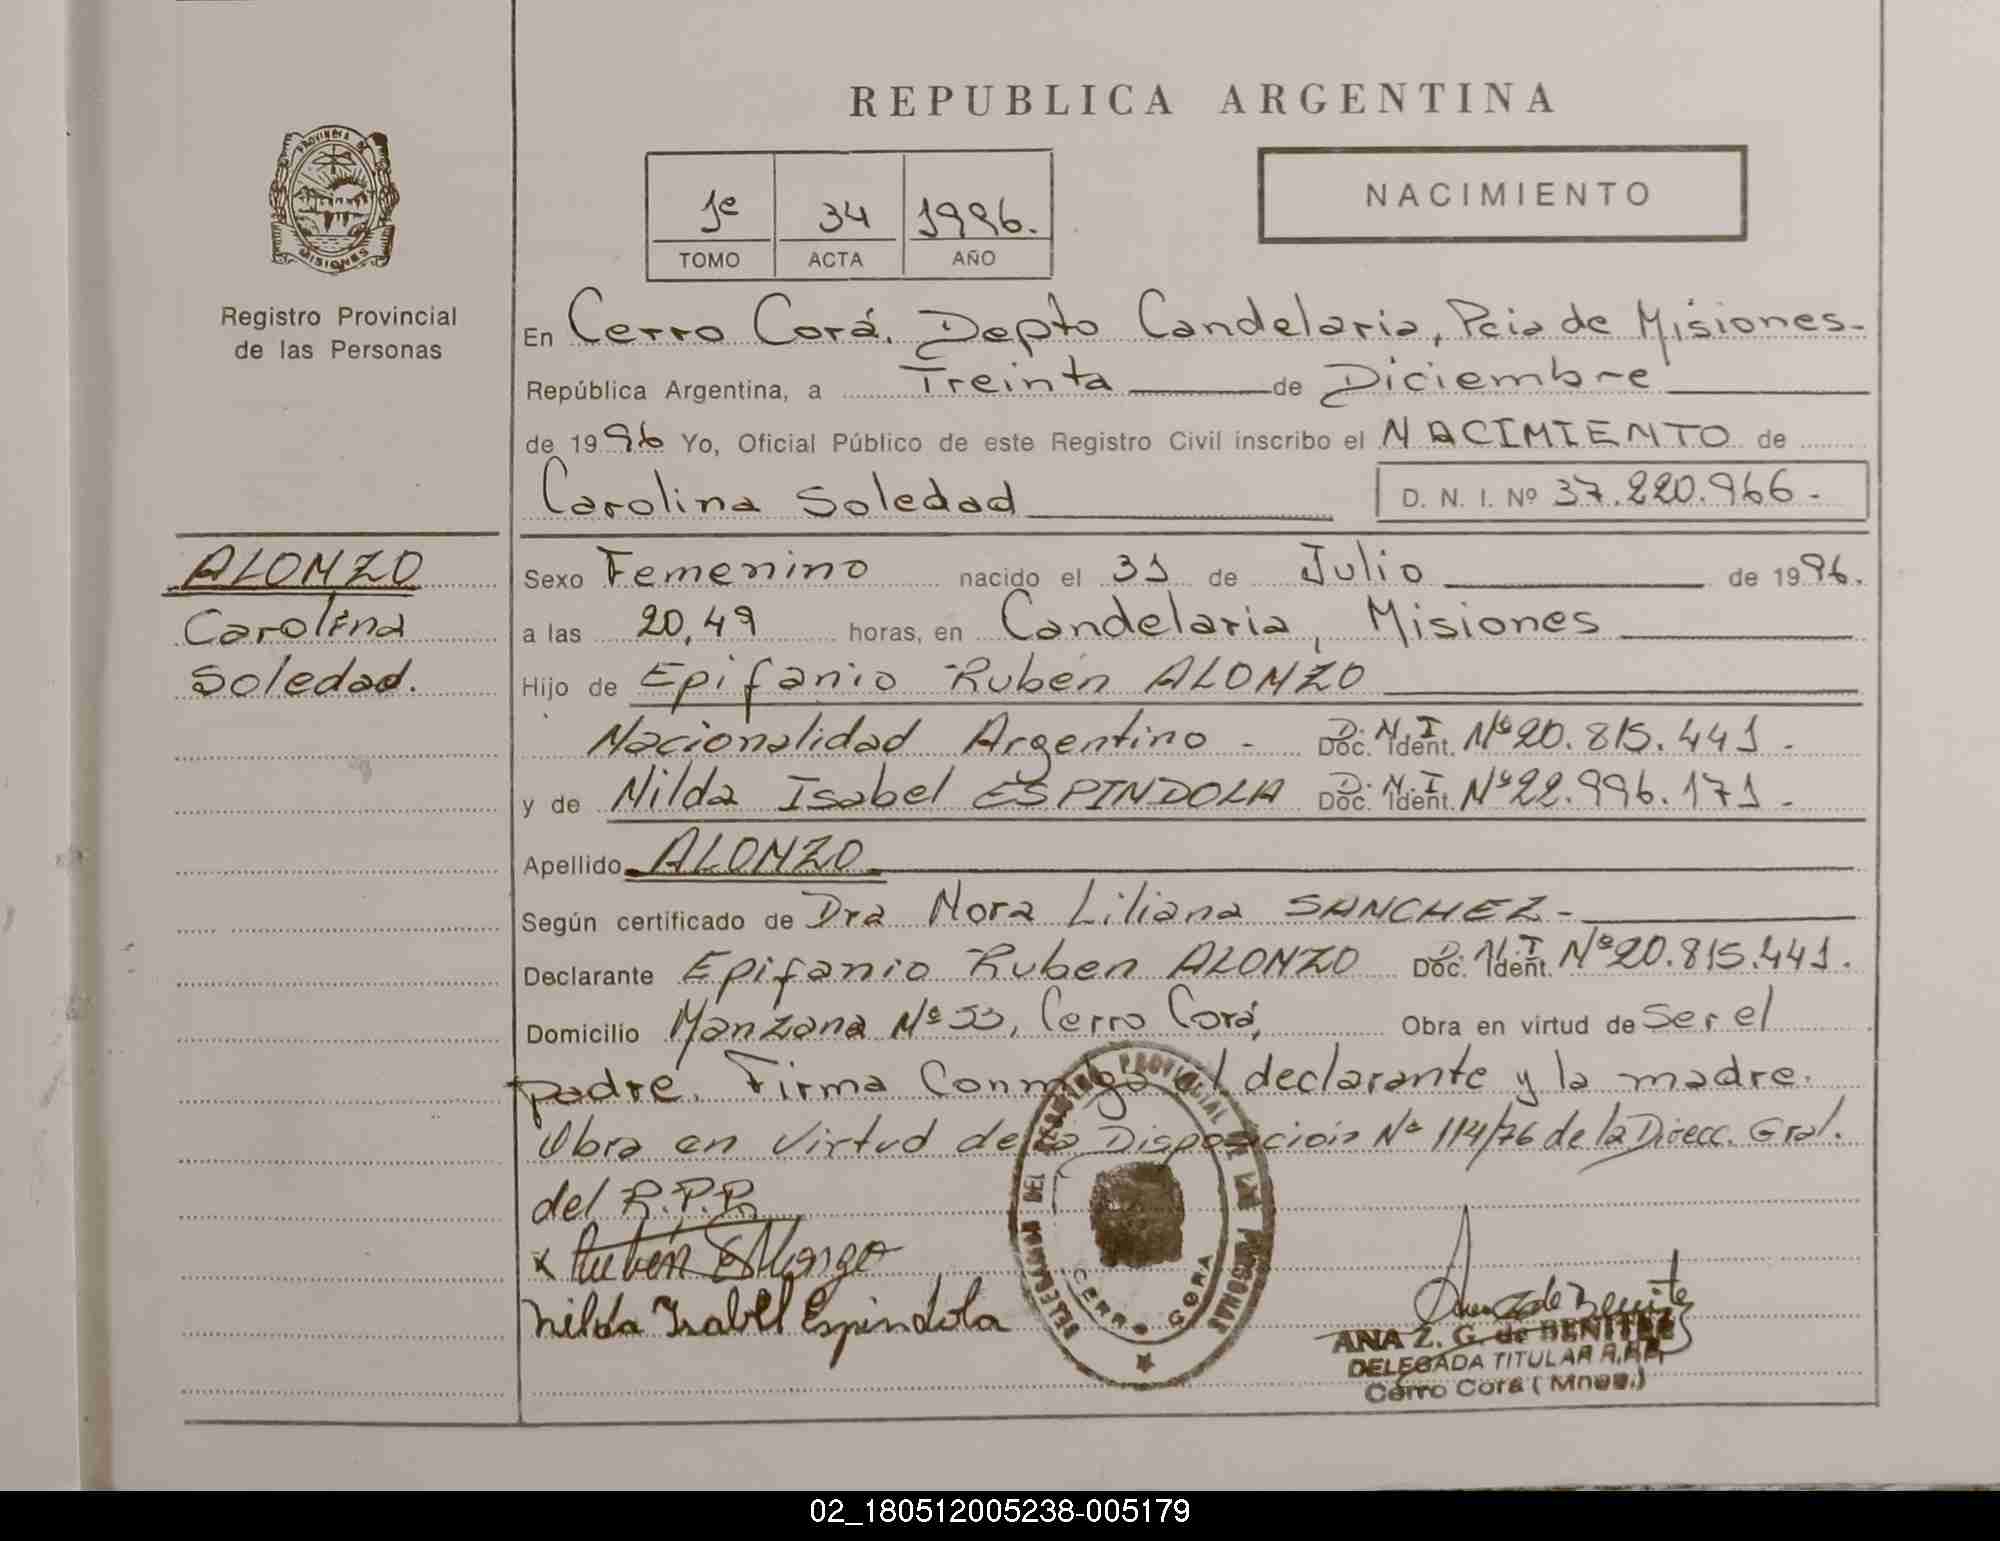 REPUBLICA ARGENTINA
PROVINCIA DE
MISIONES
Registro Provincial
de las Personas
1º 34 1996.
TOMO ACTA AÑO
NACIMIENTO
En Cerro Corá, Depto Candelaria, Pcia de Misiones.
República Argentina, a Treinta de Diciembre
de 1996 Yo, Oficial Público de este Registro Civil inscribo el NACIMIENTO de
Carolina Soledad D. N. I. Nº 37.220.966.
ALONZO
Carolina
Soledad.
Sexo Femenino nacido el 31 de Julio de 1996.
a las 20,49 horas, en Candelaria, Misiones
Hijo de Epifanio Ruben ALONZO
Nacionalidad Argentino - Doc. Ident. D.N.I Nº 20.815.441 -
y de Nilda Isabel ESPINDOLA Doc. Ident. D.N.I Nº 22.996.171 -
Apellido ALONZO
Según certificado de Dra Nora Liliana SANCHEZ -
Declarante Epifanio Ruben ALONZO Doc. Ident. D.N.I Nº 20.815.441.
Domicilio Manzana Nº 53, Cerro Corá, Obra en virtud de Ser el
padre. Firma Conmigo el declarante y la madre.
Obra en virtud de la Disposición Nº 114/76 de la Direcc. Gral.
del R.P.P.
x Ruben E Alonzo
Nilda Isabel Espindola
DELEGACION DEL REGISTRO PROVINCIAL DE LAS PERSONAS
CERRO CORA
Ana Z de Benitez
ANA Z. G. de BENITEZ
DELEGADA TITULAR R.P.P.
Cerro Corá (Mnes.)
02_180512005238-005179